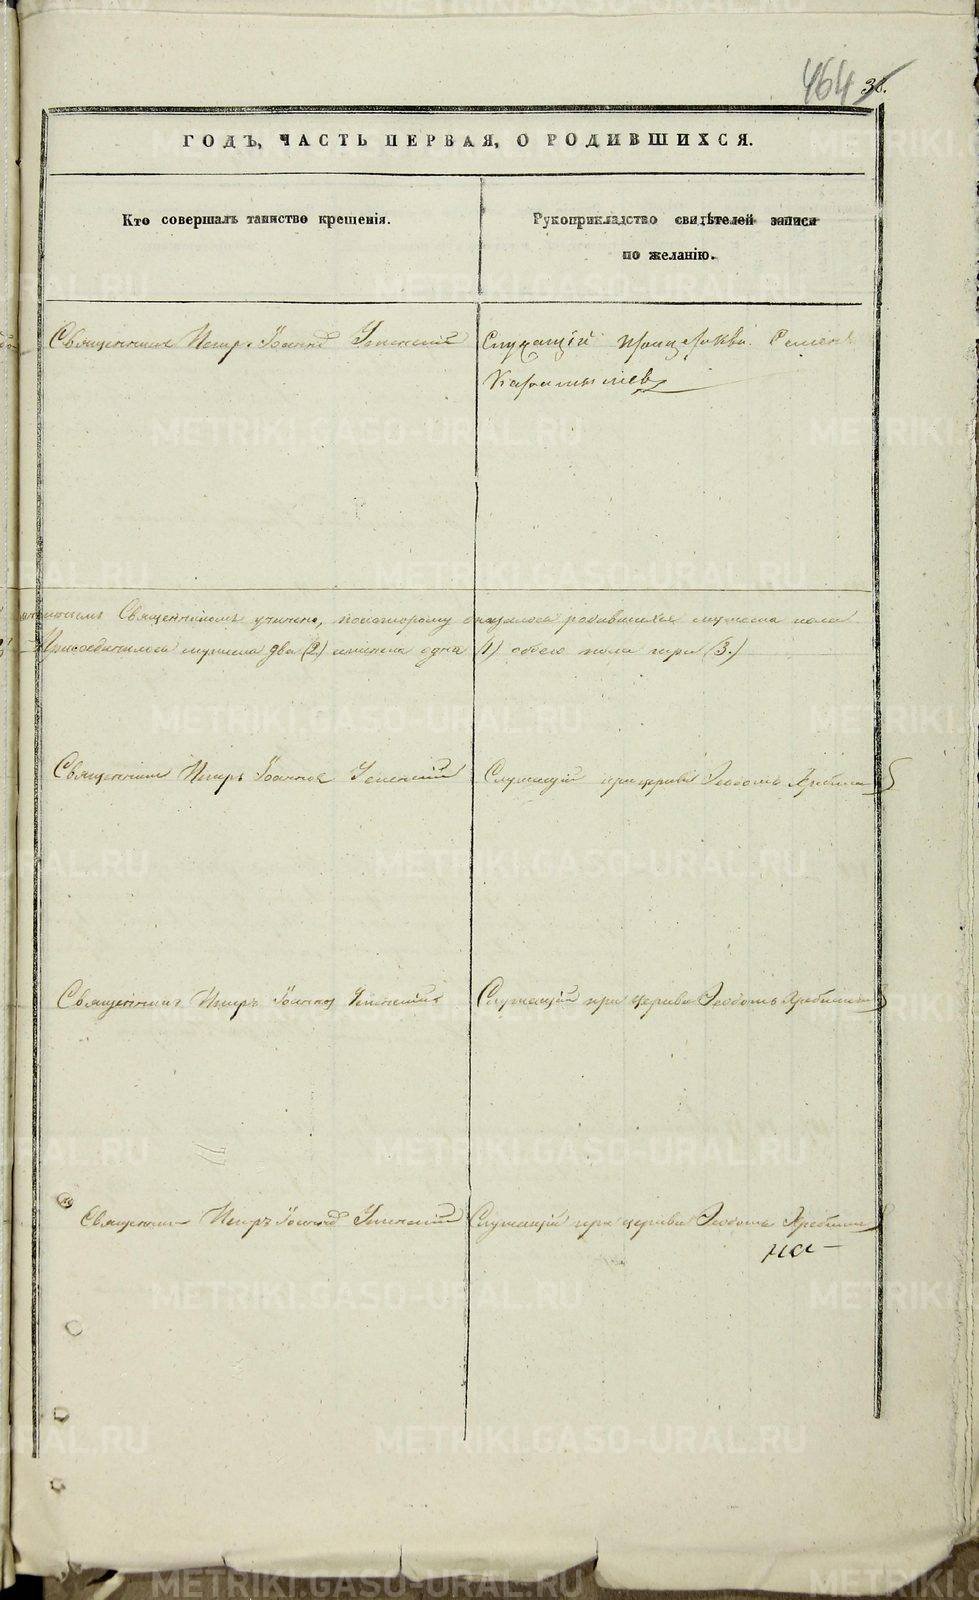 464 36.
ГОДЪ, ЧАСТЬ ПЕРВАЯ, О РОДИВШИХСЯ.
Кто совершалъ таинство крещенія.
Рукоприкладство свидѣтелей записи
по желанію.
Священникъ Петръ Іоанновъ Успенскій
Служащій
Священникомъ учинено, по которому оказалось родившихся мужеска пола
Присоединилось мужеска два (2) женска одна (1) обоего пола три (3.)
Священникъ Петръ Іоанновъ Успенскій
Служащій при церкви Ѳеодотъ
Священникъ Петръ Іоанновъ Успенскій
Служащій при церкви Ѳеодотъ
Священникъ Петръ Іоанновъ Успенскій
Служащій при церкви Ѳеодотъ
на
METRIKI.GASO-URAL.RU